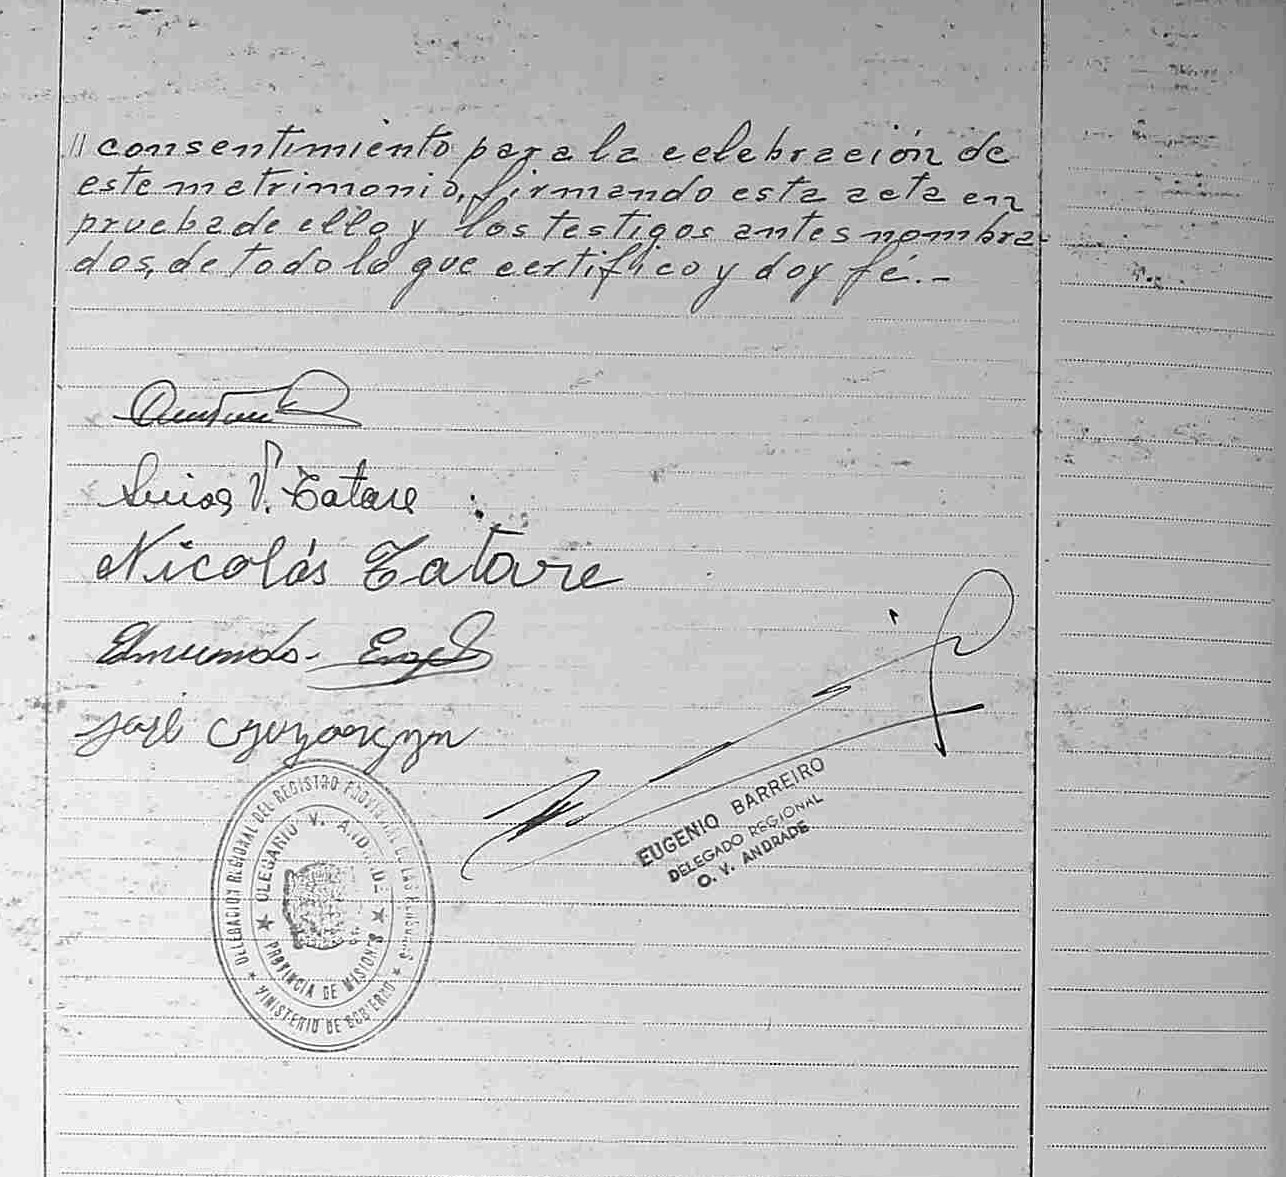 // consentimiento para la celebración de
este matrimonio, firmando esta acta en
prueba de ello y los testigos antes nombra-
dos, de todo lo que certifico y doy fé.-
V. Tatare
Nicolás Tatare
Edmundo
José
EUGENIO BARREIRO
DELEGADO REGIONAL
O. V. ANDRADE
DELEGACION REGIONAL DEL REGISTRO PROVINCIAL DE LAS PERSONAS
OLEGARIO V. ANDRADE
PROVINCIA DE MISIONES
MINISTERIO DE GOBIERNO